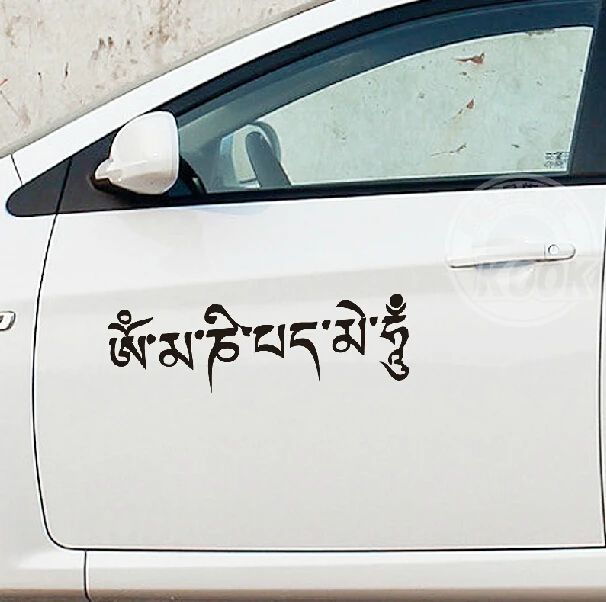 ༀ་མ་ཎི་པད་མེ་ཧཱུྃ
KOOK